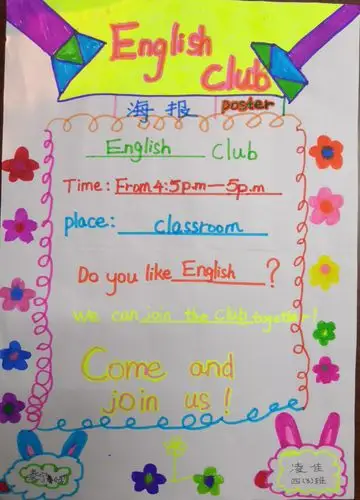 English
Club
海报 poster
English Club
Time: From 4:5p.m—5p.m
place: classroom
Do you like English ?
We can join the club together!
Come and
join us!
凌佳
四(3)班